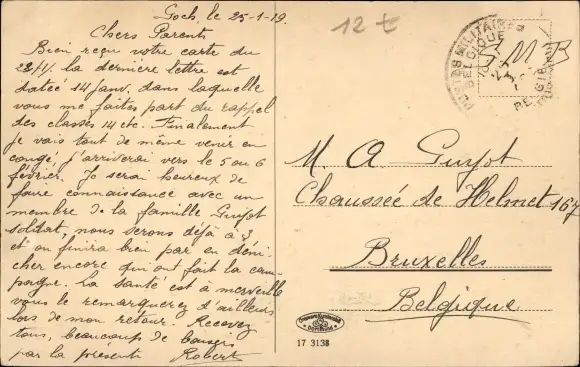 Goch, le 25-1-19.
Chers Parents
Bien reçu votre carte du
la dernière lettre est
datée 14 janv. dans laquelle
vous me faites part du rappel
des classes 14 etc. Finalement
je vais tout de même venir en
congé, j'arriverai vers le 5 ou 6
février. Je serai heureux de
faire connaissance avec un
membre de la famille Guyot
soldat, nous serons déjà à 3
et on finira bien par en déni-
cher encore qui ont fait la cam-
pagne. La santé est à merveille
vous le remarquerez d'ailleurs
lors de mon retour. Recevez
tous, beaucoup de baisers
par la présente Robert
12 €
POSTES MILITAIRES
BELGIQUE
S.M.B
M. A Guyot
Chaussée de Helmet 167
Bruxelles
Belgique
17 3138